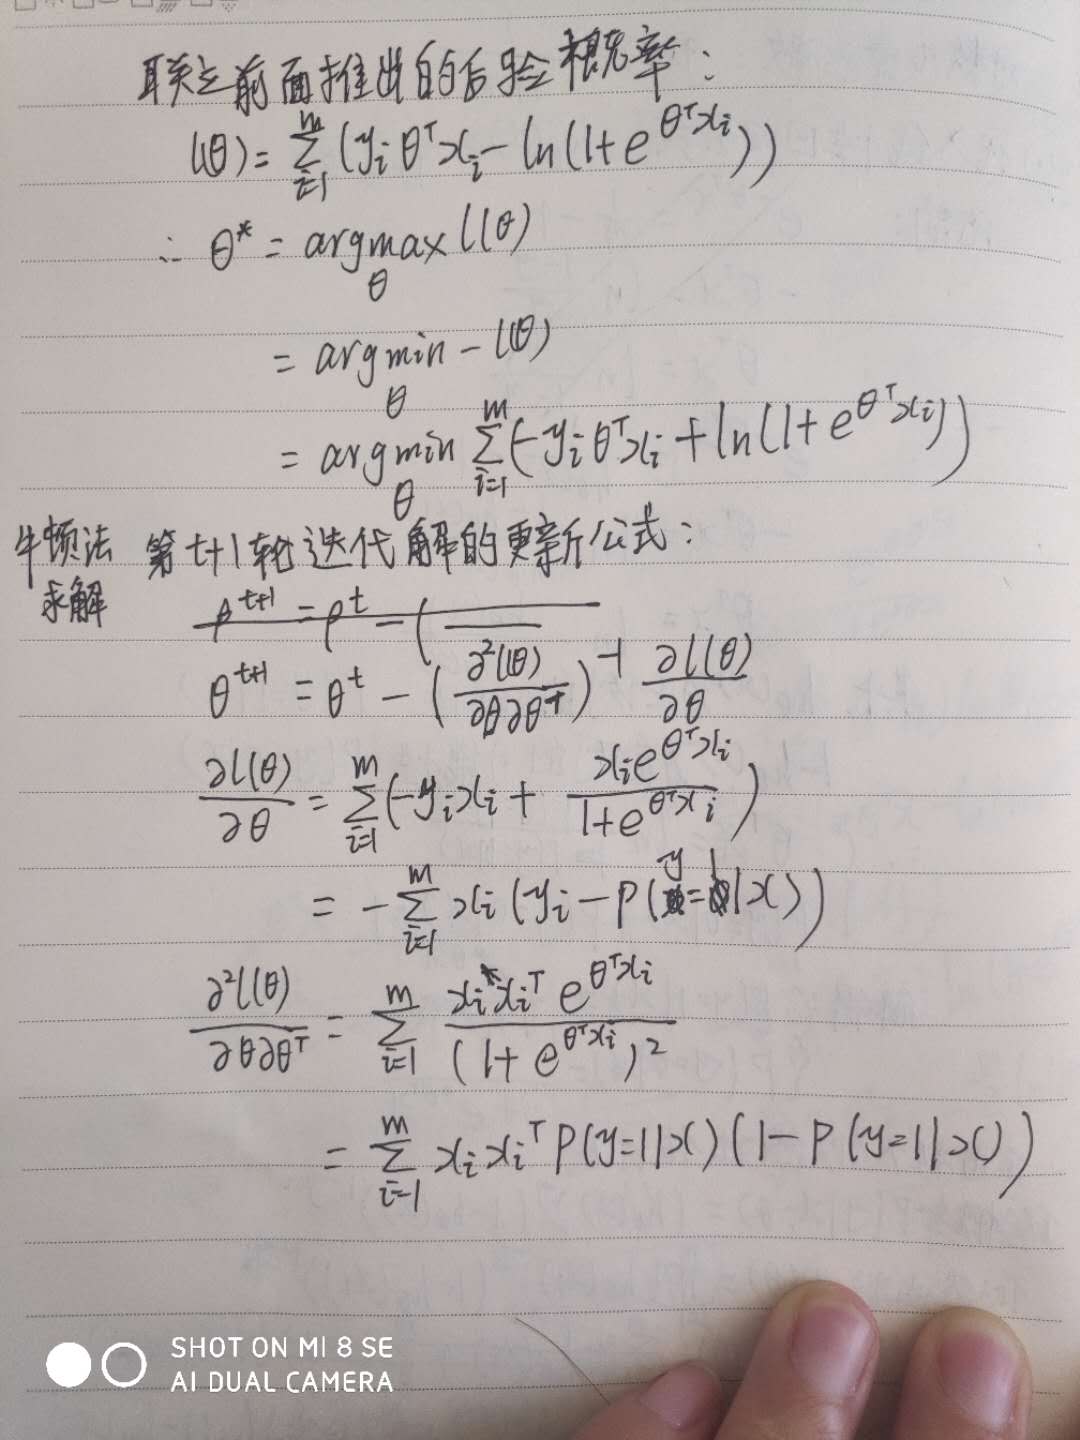 联立前面推出的后验概率：
l(θ) = ∑_{i=1}^{m} (y_i θ^T x_i - ln(1+e^{θ^T x_i}))
∴ θ^* = argmax_θ l(θ)
= argmin_θ - l(θ)
= argmin_θ ∑_{i=1}^{m} (-y_i θ^T x_i + ln(1+e^{θ^T x_i}))
牛顿法求解 第t+1轮迭代解的更新公式：
θ^{t+1} = θ^t - (∂²l(θ)/∂θ∂θ^T)^{-1} ∂l(θ)/∂θ
∂l(θ)/∂θ = ∑_{i=1}^{m} (-y_i x_i + x_i e^{θ^T x_i}/(1+e^{θ^T x_i}))
= -∑_{i=1}^{m} x_i (y_i - P(y=1|x))
∂²l(θ)/∂θ∂θ^T = ∑_{i=1}^{m} x_i x_i^T e^{θ^T x_i}/(1+e^{θ^T x_i})²
= ∑_{i=1}^{m} x_i x_i^T P(y=1|x)(1-P(y=1|x))
SHOT ON MI 8 SE
AI DUAL CAMERA